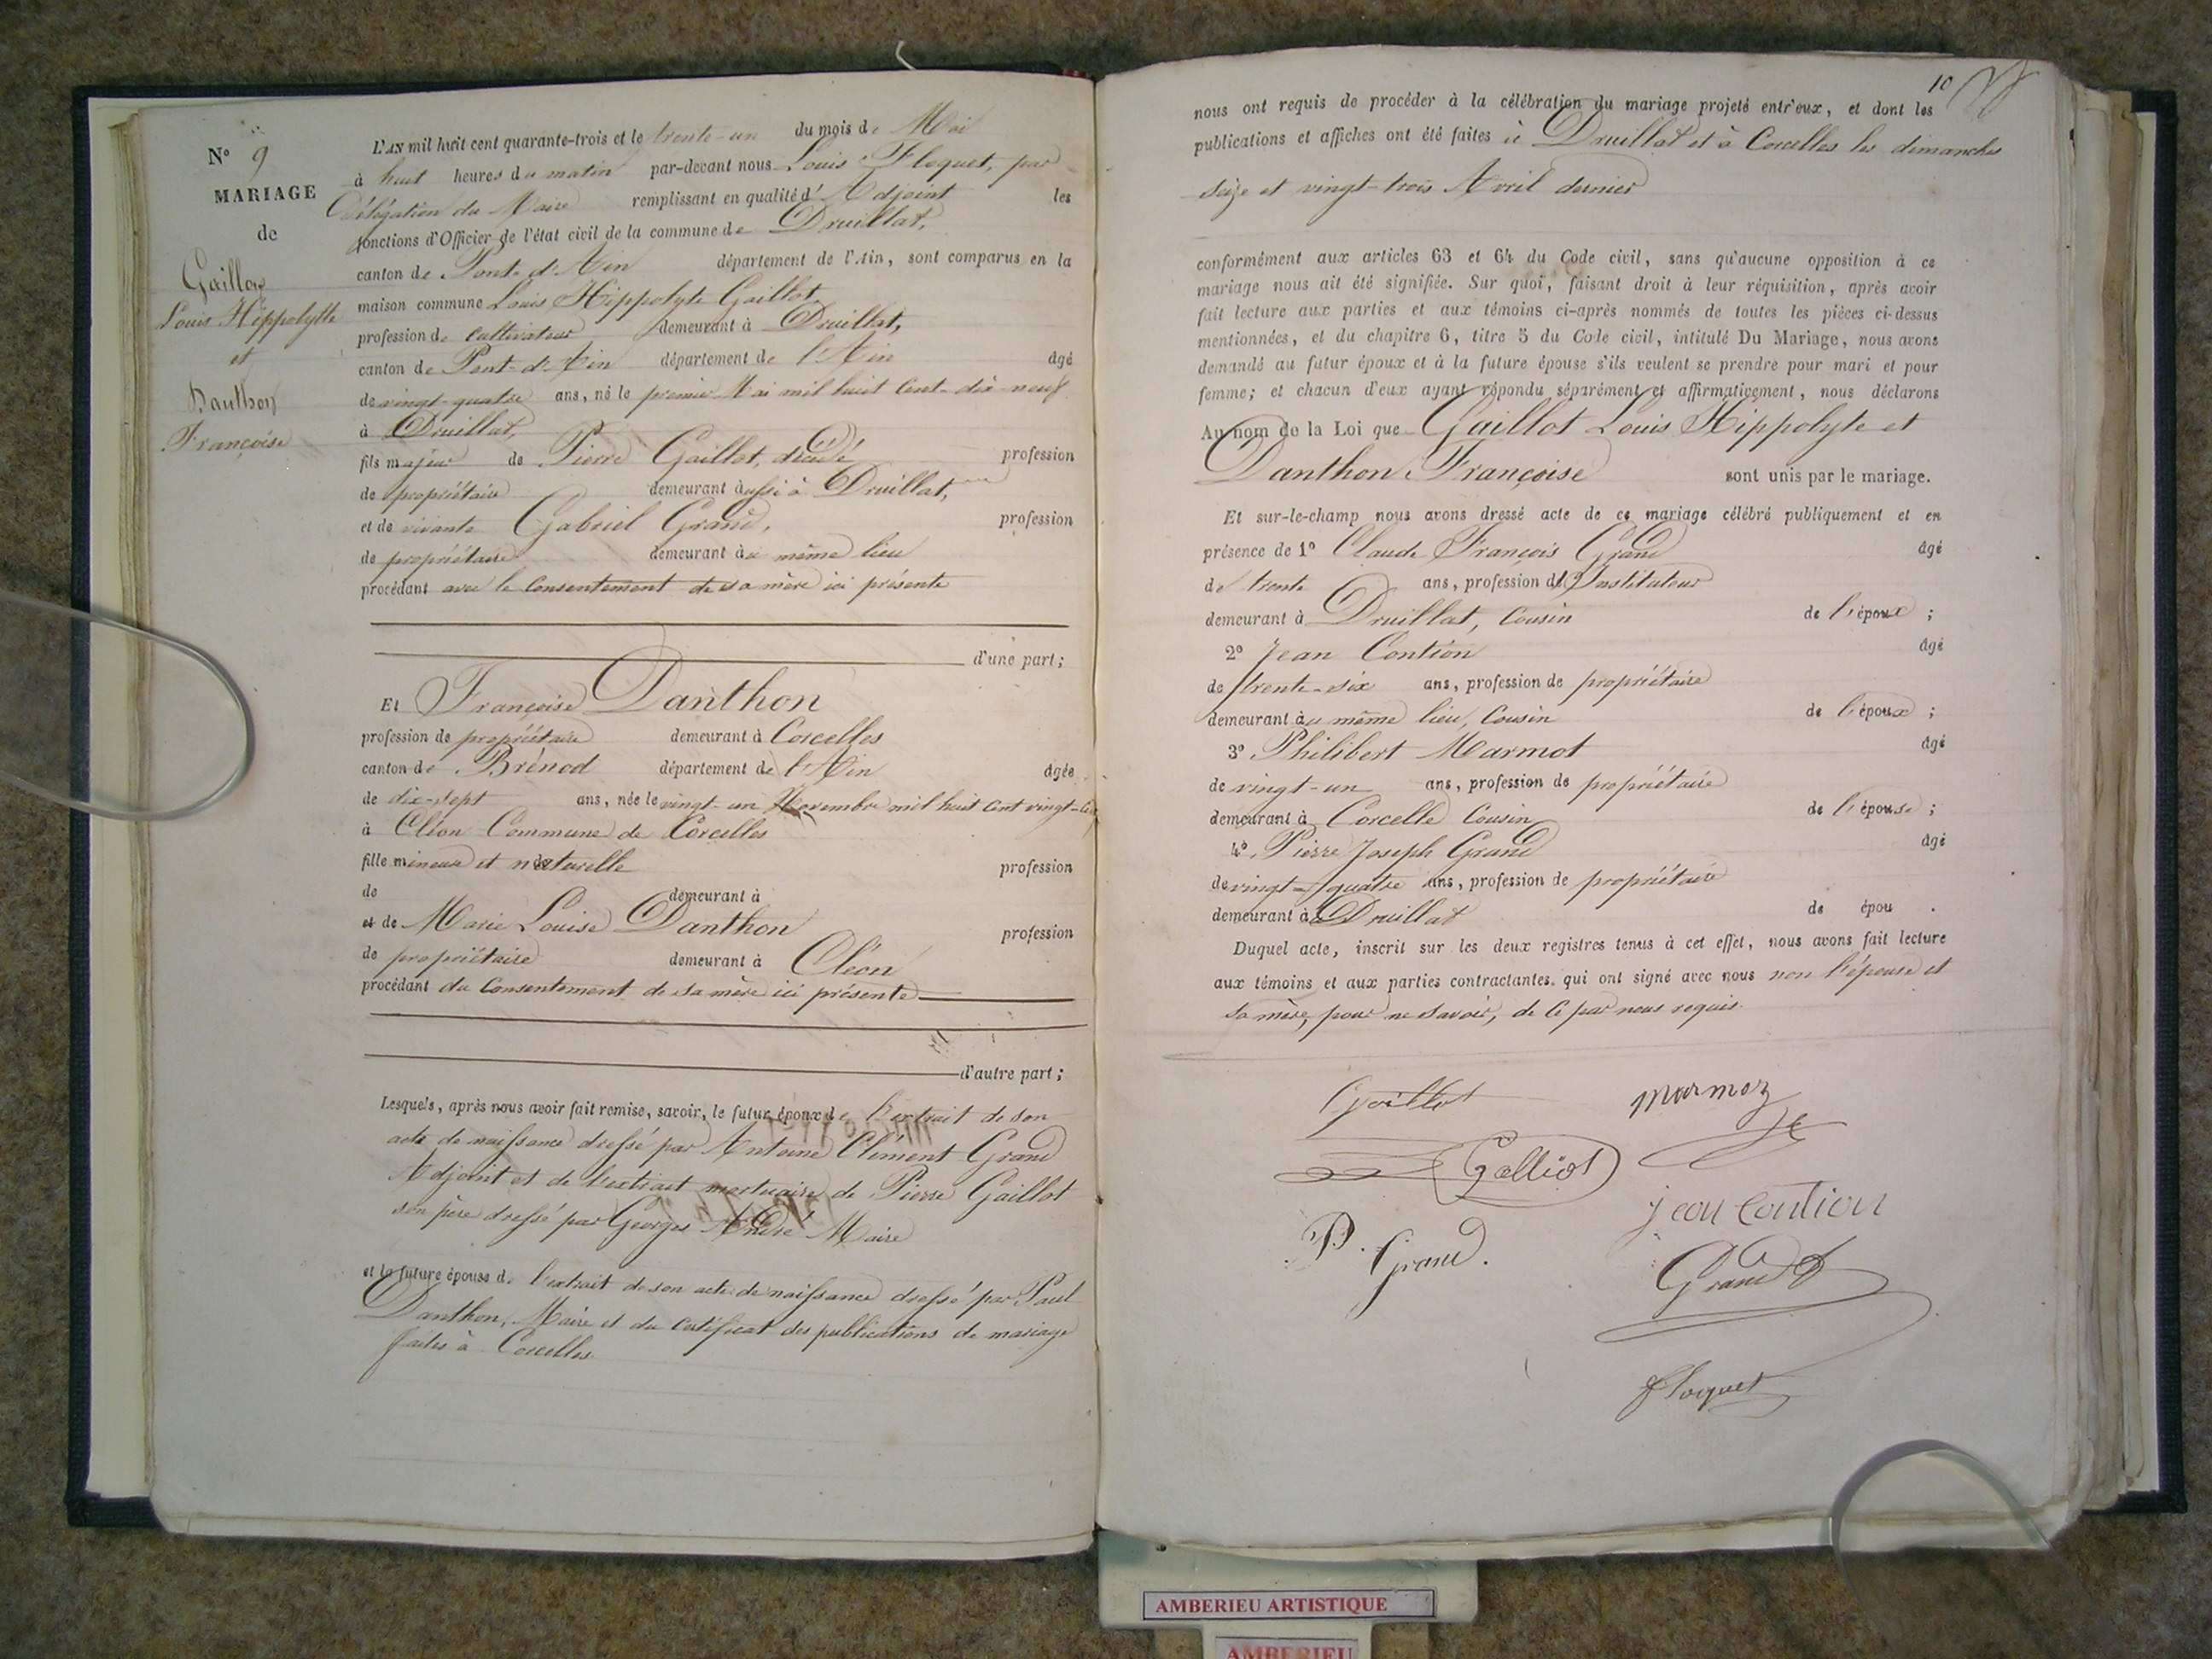 N° 9
MARIAGE
de
Gaillot
Louis Hippolytte
et
Danthon
Françoise
L'AN mil huit cent quarante-trois et le trente-un du mois de Mai
à huit heures du matin par-devant nous Louis Floquet, par
Délégation du Maire remplissant en qualité d'Adjoint les
fonctions d'Officier de l'état civil de la commune de Druillat,
canton de Pont-d'Ain département de l'Ain, sont comparus en la
maison commune Louis Hippolyte Gaillot
profession de cultivateur demeurant à Druillat,
canton de Pont-d'Ain département de l'Ain âgé
de vingt-quatre ans, né le premier Mai mil huit cent-dix-neuf
à Druillat,
fils majeur de Pierre Gaillot, décédé profession
de propriétaire demeurant aussi à Druillat,
et de vivante Gabriel Grand, profession
de propriétaire demeurant au même lieu
procédant avec le Consentement de sa mère ici présente
d'une part;
Et Françoise Danthon
profession de propriétaire demeurant à Corcelles
canton de Brénod département de l'Ain âgée
de dix-sept ans, née le vingt-un Novembre mil huit cent vingt-cinq
à Cléon Commune de Corcelles
fille mineure et naturelle de profession
de demeurant à
et de Marie Louise Danthon profession
de propriétaire demeurant à Cléon
procédant du Consentement de sa mère ici présente
d'autre part;
Lesquels, après nous avoir fait remise, savoir, le futur époux de l'extrait de son
acte de naissance dressé par Antoine Clément Grand
Adjoint et de l'extrait mortuaire de Pierre Gaillot
son père dressé par Georges André Maire
et la future épouse de l'extrait de son acte de naissance dressé par Paul
Danthon, Maire et du Certificat des publications de mariage
faites à Corcelles.
10
nous ont requis de procéder à la célébration du mariage projeté entr'eux, et dont les
publications et affiches ont été faites à Druillat et à Corcelles les dimanches
seize et vingt-trois Avril dernier
conformément aux articles 63 et 64 du Code civil, sans qu'aucune opposition à ce
mariage nous ait été signifiée. Sur quoi, faisant droit à leur réquisition, après avoir
fait lecture aux parties et aux témoins ci-après nommés de toutes les pièces ci-dessus
mentionnées, et du chapitre 6, titre 5 du Code civil, intitulé Du Mariage, nous avons
demandé au futur époux et à la future épouse s'ils veulent se prendre pour mari et pour
femme; et chacun d'eux ayant répondu séparément et affirmativement, nous déclarons
Au nom de la Loi que Gaillot Louis Hippolyte et
Danthon Françoise sont unis par le mariage.
Et sur-le-champ nous avons dressé acte de ce mariage célébré publiquement et en
présence de 1° Claude François Grand âgé
de trente ans, profession d'Instituteur
demeurant à Druillat, Cousin de l'époux;
2° Jean Contion âgé
de trente-six ans, profession de propriétaire
demeurant au même lieu, Cousin de l'époux;
3° Philibert Marmot âgé
de vingt-un ans, profession de propriétaire
demeurant à Corcelle Cousin de l'épouse;
4° Pierre Joseph Grand âgé
de vingt-quatre ans, profession de propriétaire
demeurant à Druillat de épou .
Duquel acte, inscrit sur les deux registres tenus à cet effet, nous avons fait lecture
aux témoins et aux parties contractantes. qui ont signé avec nous non l'épouse et
sa mère, pour ne savoir, de ce par nous requis.
Gaillot
marmoz
Galliot
jean Contion
P. Grand.
Grand
Floquet
AMBERIEU ARTISTIQUE
AMBERIEU